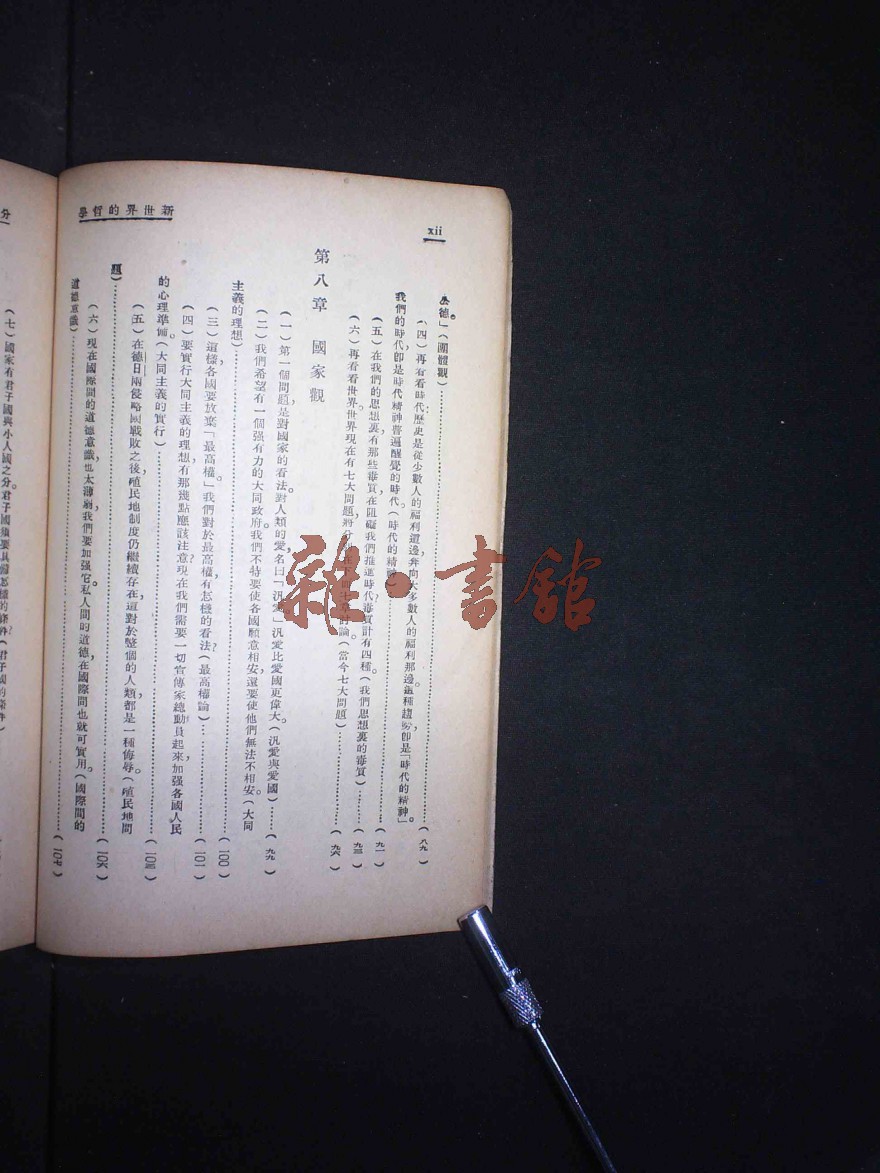 新世界的哲學
xii
公德。」(團體觀)
(四)再看看時代歷史是從少數人的福利這邊奔向大多數人的福利那邊這種趨勢,卽是「時代的精神」(八九)
我們的時代,卽是時代精神普遍醒覺的時代。(時代的精神)
(五)在我們的思想裏有那些毒質在阻礙我們推進時代毒質計有四種。(我們思想裏的毒質)(九一)
(六)再看看世界。世界現在有七大問題將分討論。(當今七大問題)(九三)
(九六)
第八章 國家觀
(一)第一個問題,是對國家的看法對人類的愛,名曰「汎愛」汎愛比愛國更偉大。(汎愛與愛國)(九九)
(二)我們希望有一個强有力的大同政府。我們不特要使各國願意相安,還要使他們無法不相安。(大同
主義的理想)(100)
(三)這樣,各國要放棄「最高權」我們對於最高權有怎樣的看法?(最高權論)(101)
(四)要實行大同主義的理想,有那幾點應該注意?現在我們需要一切宣傳家總動員起來,加强各國人民
的心理準備。(大同主義的實行)(10三)
(五)在德日兩侵略國戰敗之後,殖民地制度仍繼續存在,這對於整個的人類都是一種侮辱。(殖民地問
題)(10六)
(六)現在國際間的道德意識,也太薄弱我們要加强它。私人間的道德,在國際間也就可實用。(國際間的
道德意識)(10七)
(七)國家有君子國與小人國之分君子國須要具備怎樣的條件?(君子國的條件)
分
雜·書館